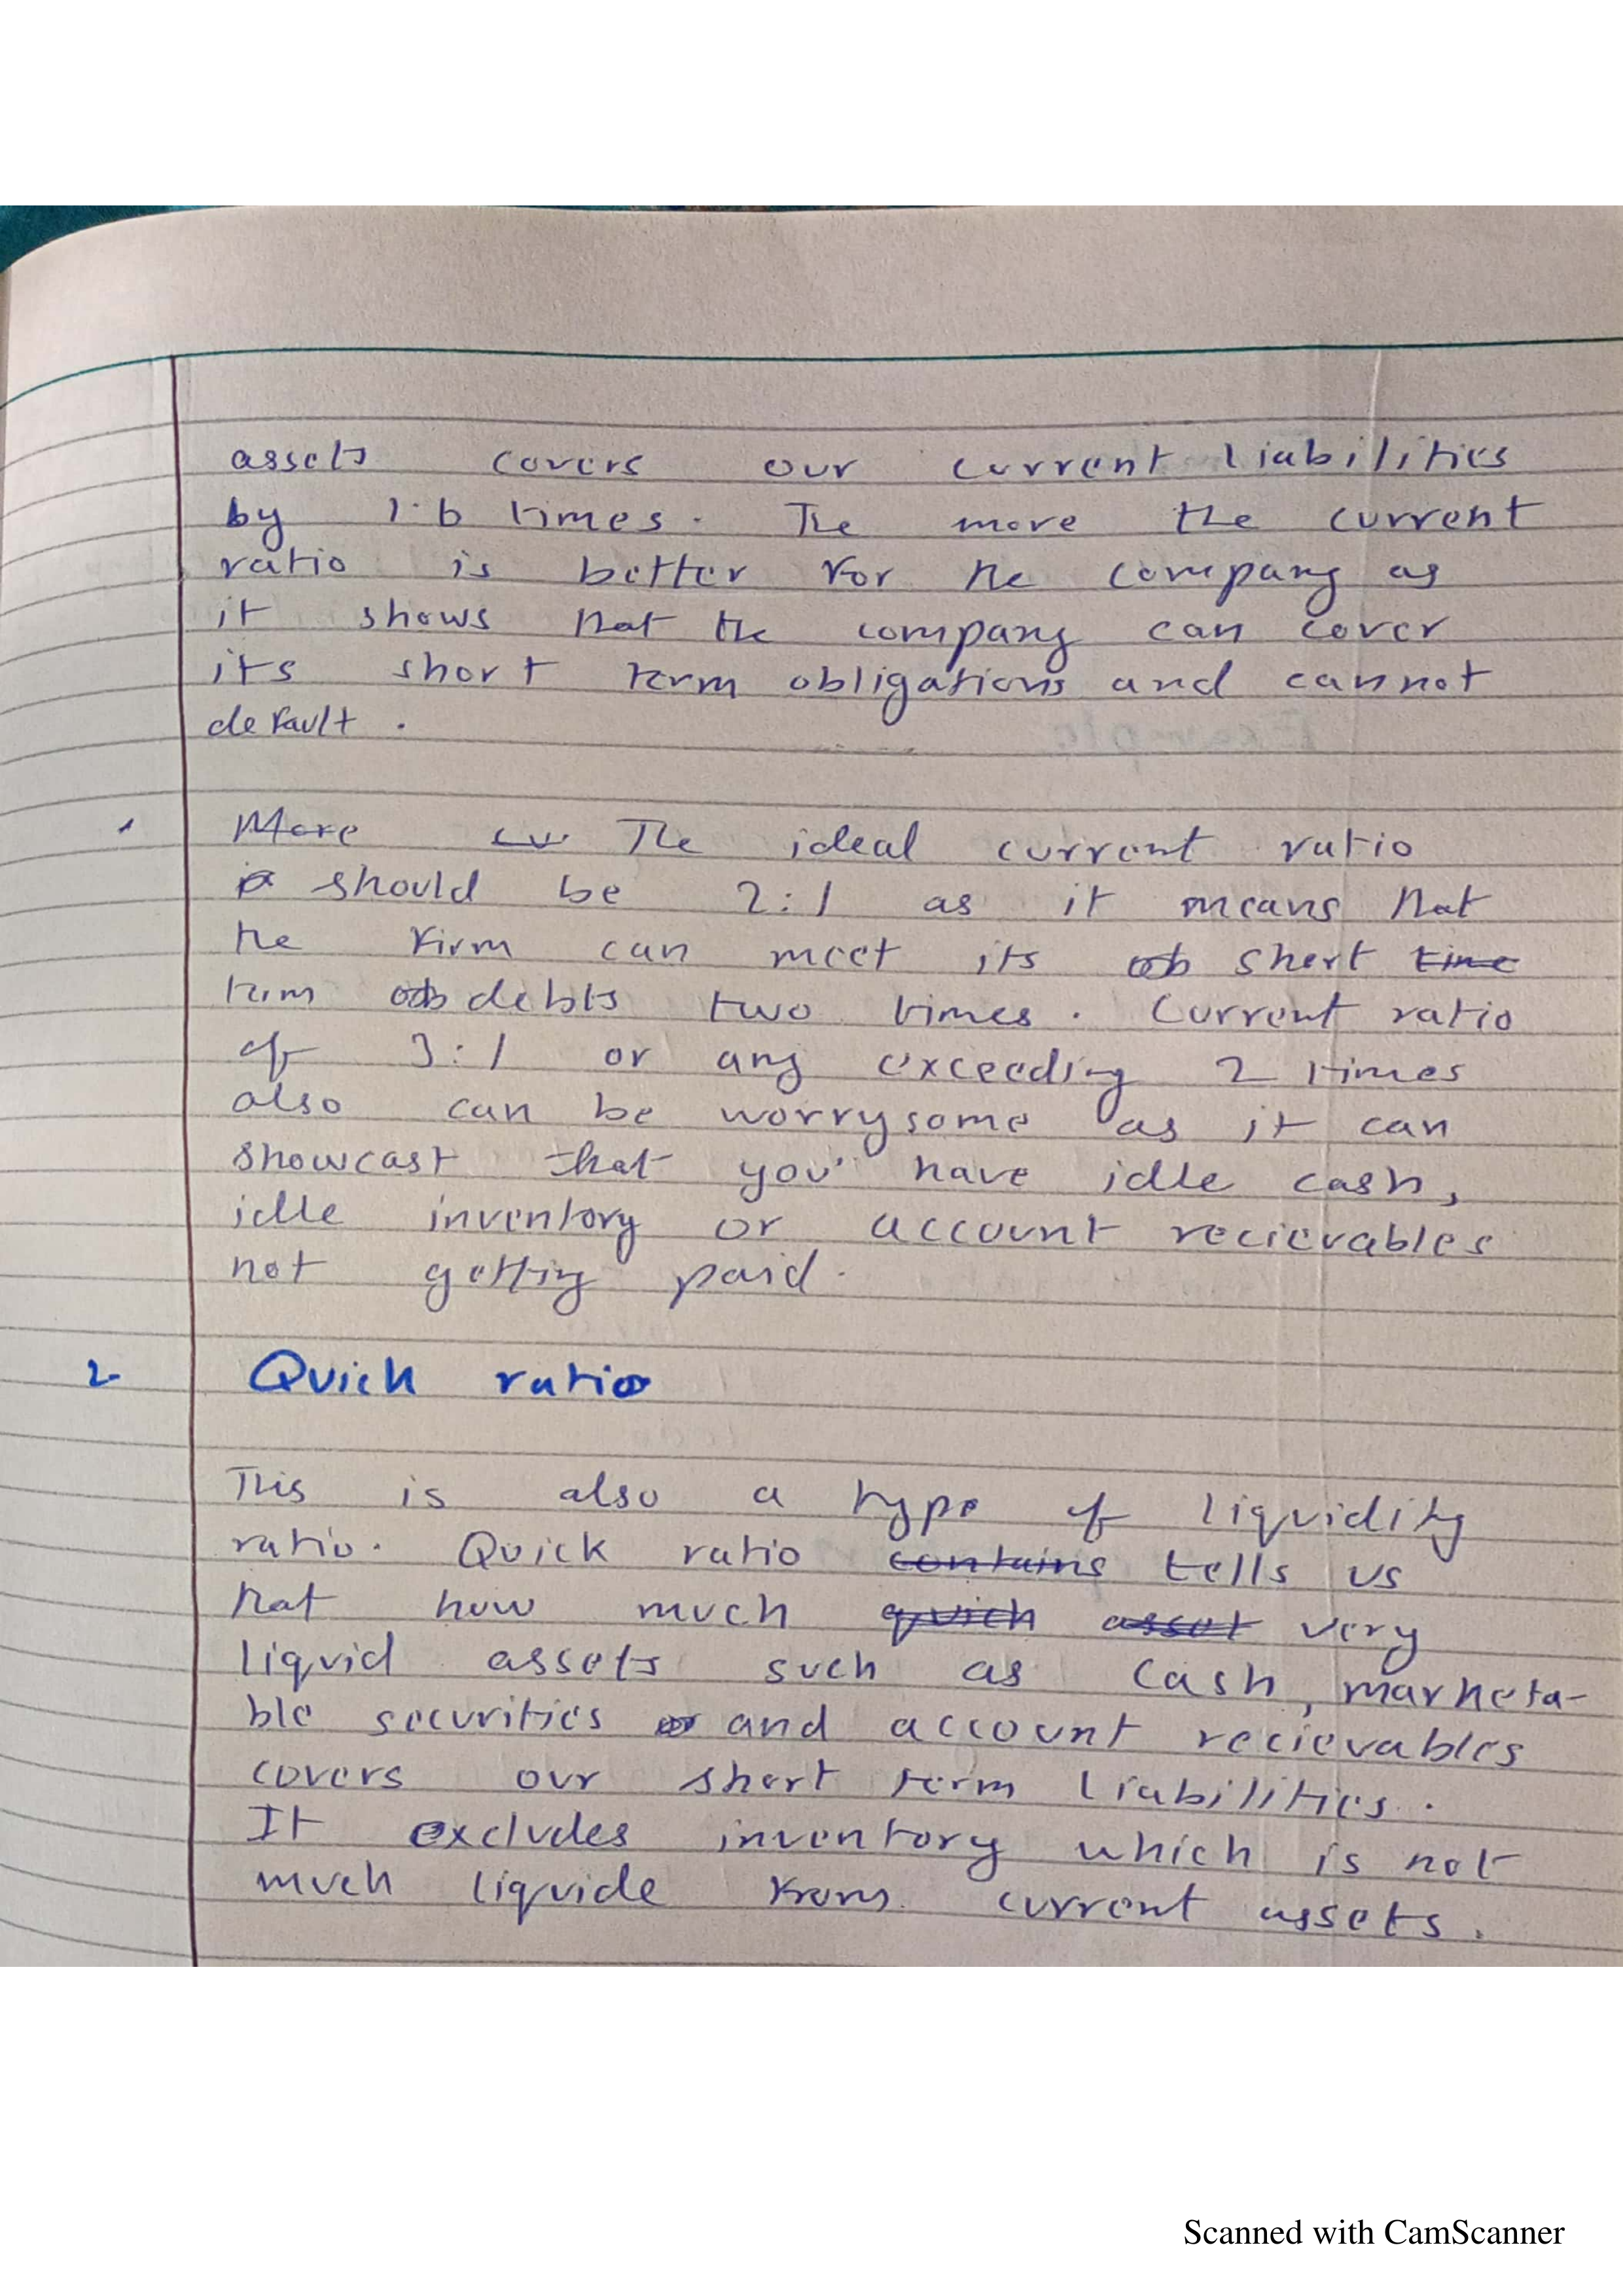 assets covers our current liabilities
by 1.6 times. The more the current
ratio is better for the company as
it shows that the company can cover
its short term obligations and cannot
default.
More cu The ideal current ratio
should be 2:1 as it means that
the firm can meet its ob short time
term ob debts two times. Current ratio
of 3:1 or any exceeding 2 times
also can be worrysome as it can
showcast that you have idle cash,
idle inventory or account recievables
not getting paid.
2 Quick ratio
This is also a type of liquidity
ratio. Quick ratio contains tells us
that how much quick asset very
liquid assets such as cash, marketa-
ble securities or and account recievables
covers our short term liabilities.
It excludes inventory which is not
much liquide from current assets.
Scanned with CamScanner